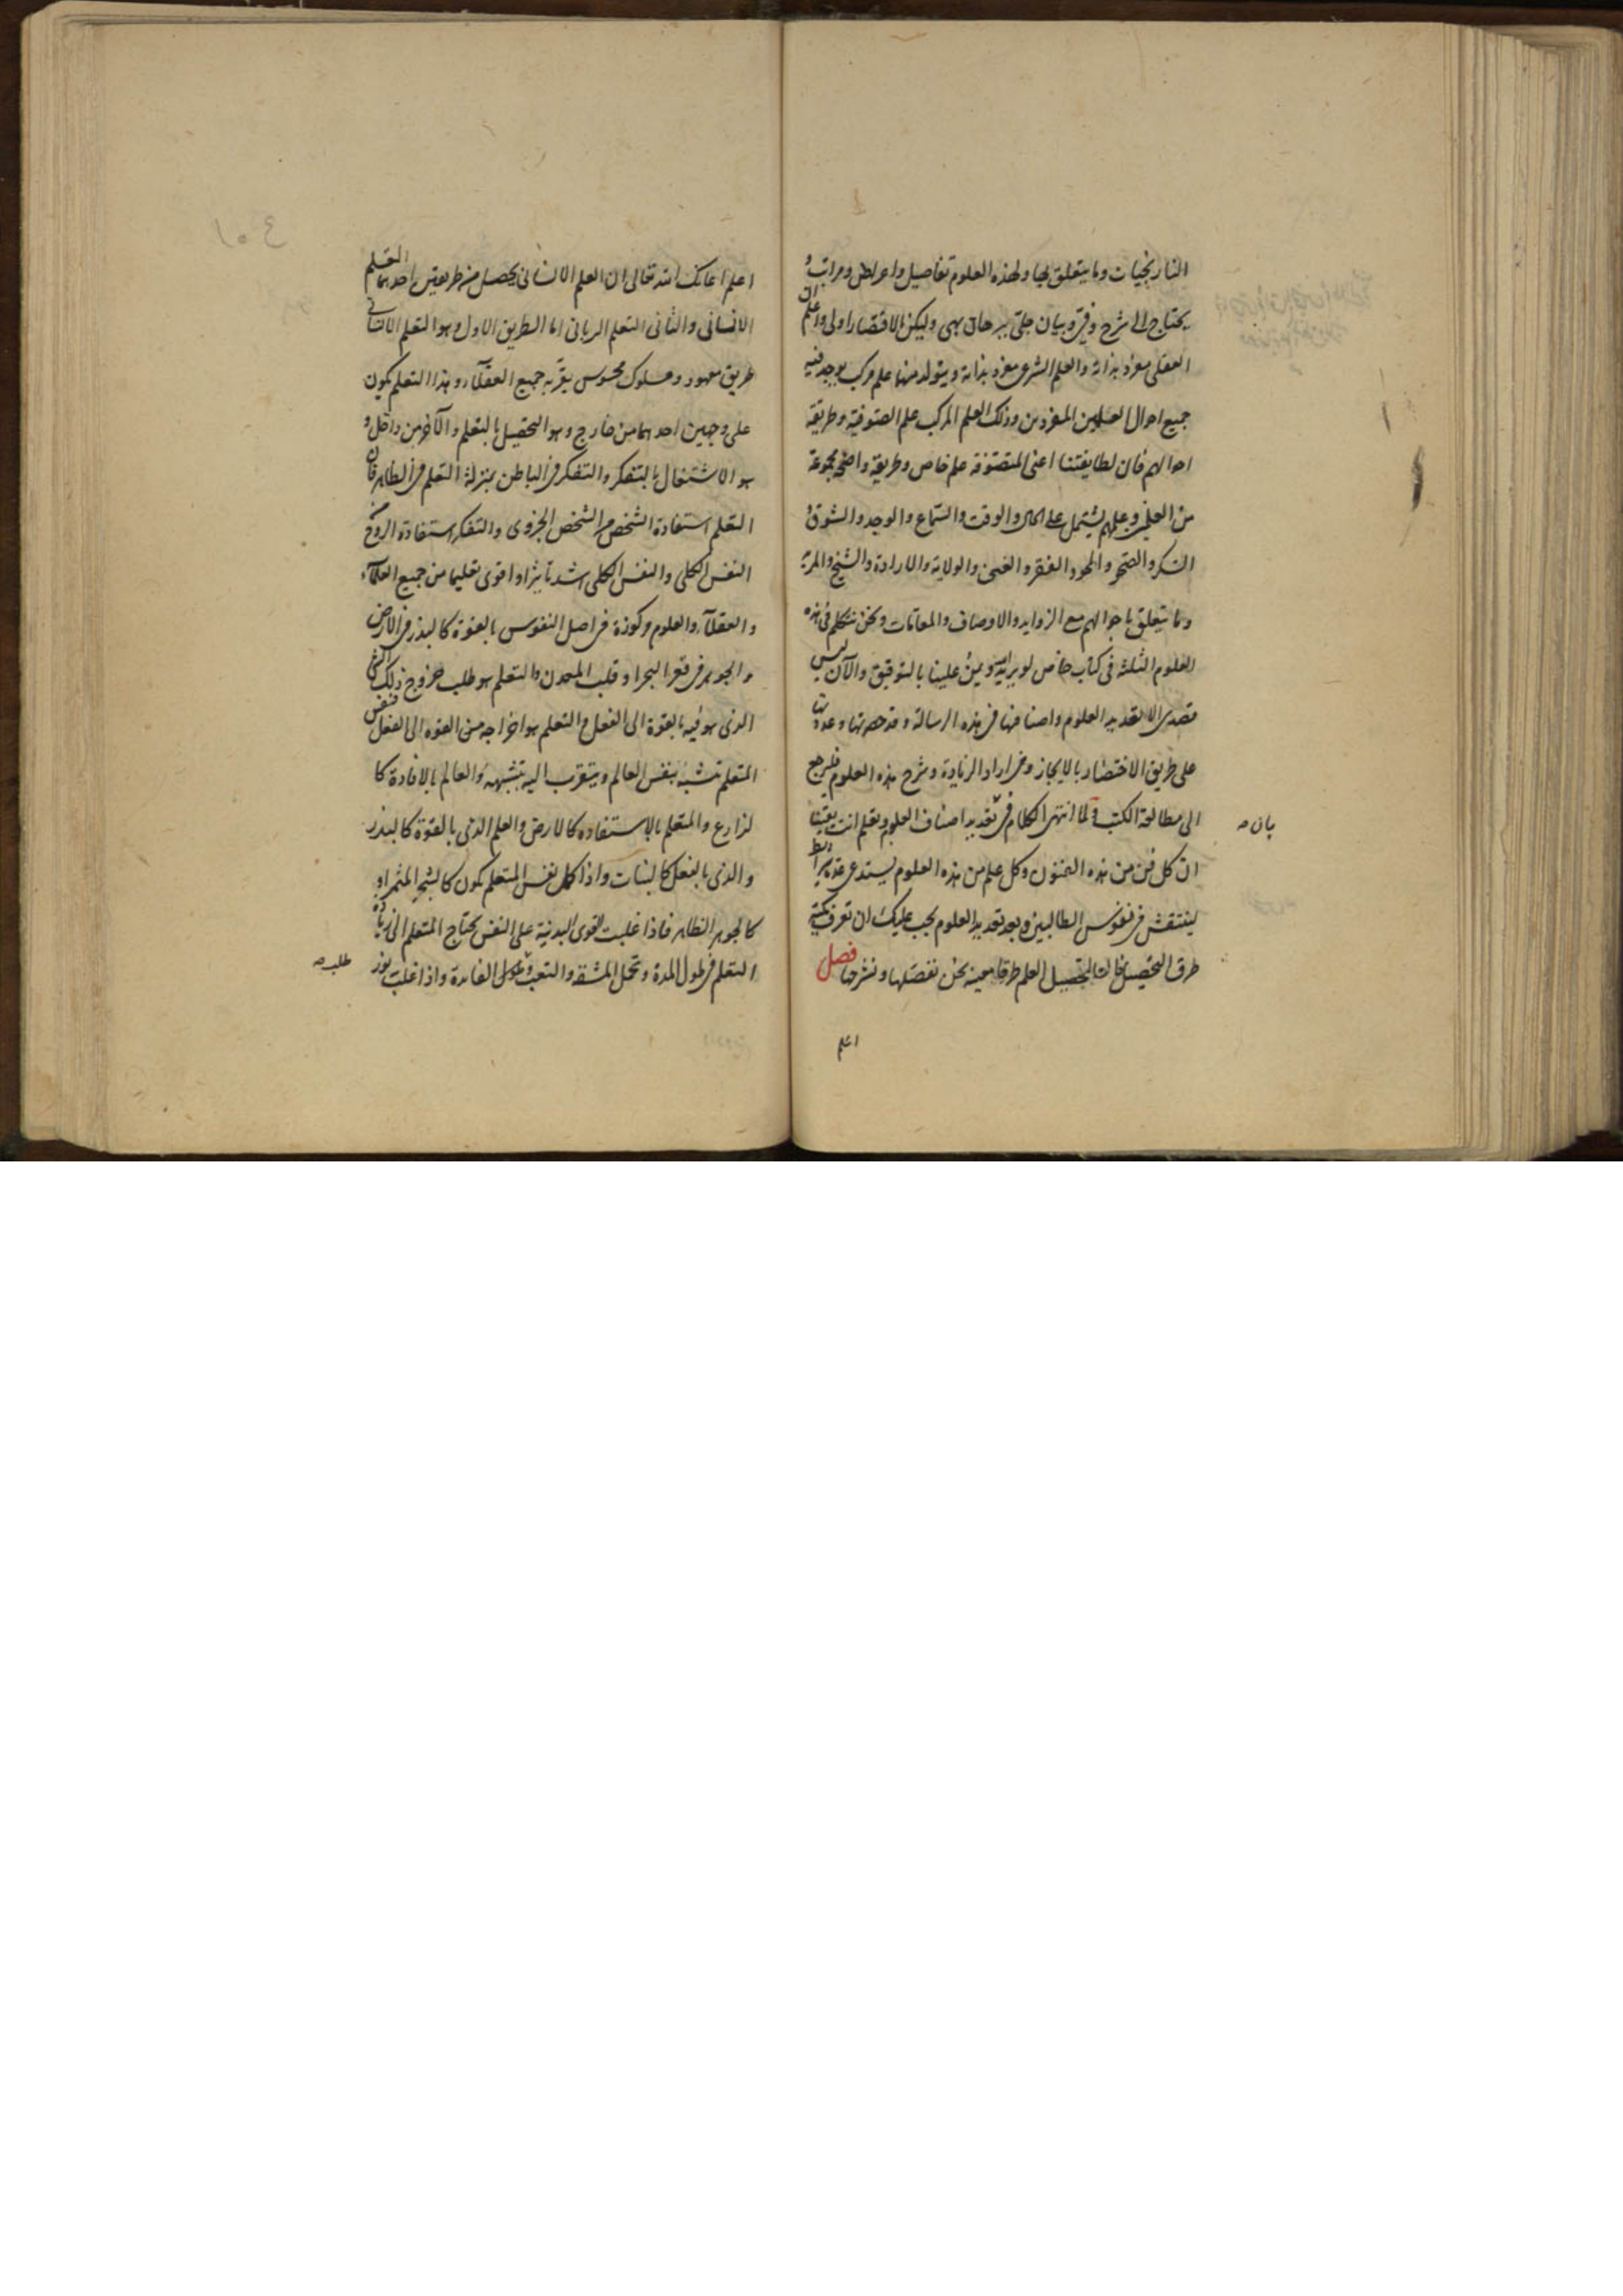 النارنجيات وما يتعلق بها ولهذه العلوم تفاصيل واعراض ومراتب و
يحتاج الى شرح وفر وبيان جلى ببرهان بهى وليكن الاقتصار اولى واعلم ان
العقلى مفرد بذاته والعلم الشرعى مفرد بذاته ويتولد منهما علم مركب يوجد فيه
جميع احوال العلمين المفردين وذلك العلم المركب علم الصوفية وطريقة
احوالهم فان لطايفتنا اعنى المتصوفة علم خاص وطريقة واضح مجموعة
من العلمين وعلمهم يشتمل على الحال والوقت والسماع والوجد والشوق و
السكر والصحو والمحو والفقر والغنى والولاية والارادة والشيخ والمريد
وما يتعلق باحوالهم مع الزوايد والاوصاف والمقامات ونحن نتكلم فى هذه
العلوم الثلثة فى كتاب خاص لو يريد الله ويمن علينا بالتوفيق والآن ليس
قصدى الا تعديد العلوم واصنافها فى هذه الرسالة وقد حصرتها وعددتها
على طريق الاختصار بالايجاز ومن اراد الزيادة وشرح هذه العلوم فليرجع
الى مطالعة الكتب ولما انتهى الكلام فى تعديد اصناف العلوم وتعلم انت يقينا
بان ص
ان كل فن من هذه الفنون وكل علم من هذه العلوم يستدعى عدة شرائط
لينتقش فى نفوس الطالبين وبعد تعديد العلوم يجب عليك ان تعرف كيفية
طرق التحصيل فان لتحصيل العلم طرقا معينة نحن نفصلها ونشرحها فصل
اعلم
١٥٤
اعلم اعانك الله تعالى ان العلم الانسانى يحصل من طريقين احدهما التعلم
الانسانى والثانى التعلم الربانى اما الطريق الاول وهو التعلم الانسانى
طريق معهود ومسلوك محسوس يقرّ به جميع العقلاء وهذا التعلم يكون
على وجهين احدهما من خارج وهو التحصيل بالتعلم والآخر من داخل و
هو الاشتغال بالتفكر والتفكر فى الباطن بمنزلة التعلم فى الظاهر فان
التعلم استفادة الشخص من الشخص الجزوى والتفكر استفادة الروح
النفس الكلى والنفس الكلى اشد تأثيرا واقوى تعليما من جميع العلماء
والعقلاء والعلوم مركوزة فى اصل النفوس بالقوة كالبذر فى الارض
والجوهر فى قعر البحر او قلب المعدن والتعلم هو طلب خروج ذلك الشئ
الذى هو فيه بالقوة الى الفعل والتعلم هو اخراجه من القوة الى الفعل فنفس
المتعلم تتشبه بنفس العالم ويتقرب اليه بتشبهه والعالم بالافادة كا
لزارع والمتعلم بالاستفادة كالارض والعلم الذى بالقوة كالبذر
والذى بالفعل كالنبات واذا كمل نفس المتعلم يكون كالشجر المثمر او
كالجوهر الظاهر فاذا غلبت القوى البدنية على النفس يحتاج المتعلم الى زيادة
التعلم فى طول المدة وتحمل المشقة والتعب و الفائدة واذا غلب نور
طلب ص